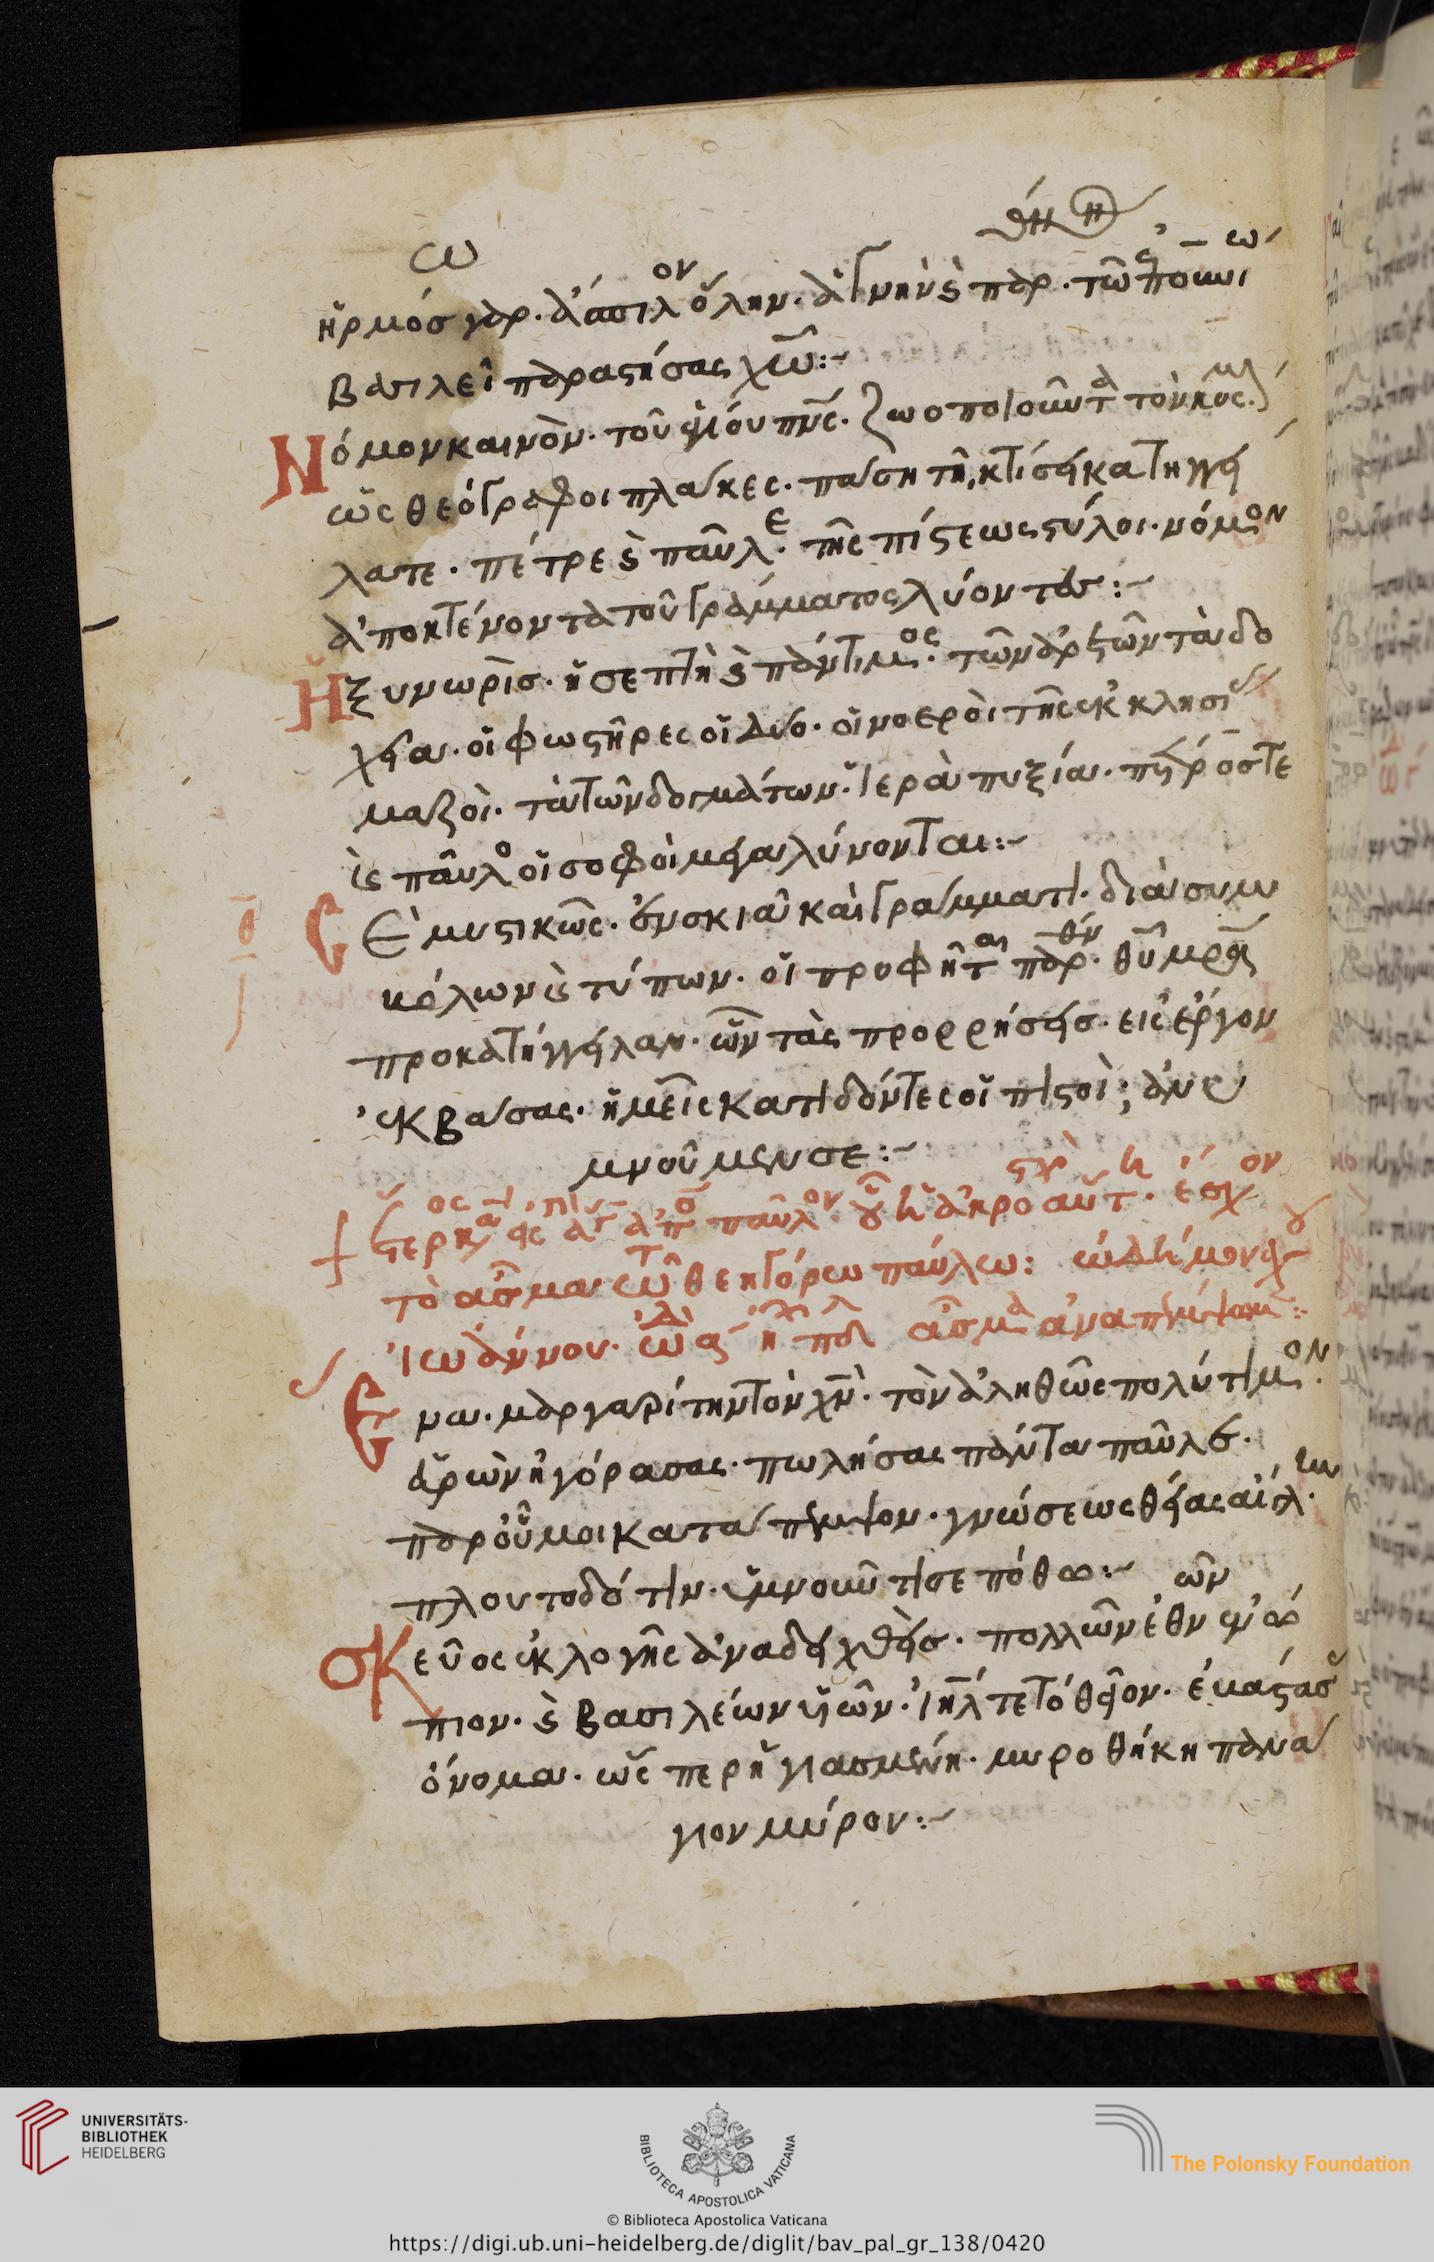 ω
ἥρμόσ γὰρ. ἄσπιλον ὅλην. ἁγνὴν ϛ παρ. τῶ
βασιλεῖ παραστήσας χῶ:~
Νόμον καινὸν. τοῦ θείου πνς. ζωοποιοῦντα τὸν
ὡς θεόγραφοι πλάκες. πάση τῆ κτίσει κατηγγεί
λατε. πέτρε ϛ παῦλε. τῆς πίστεως στύλοι. νόμον
ἀποκτένοντα τοῦ γράμματος λύοντα:~
Ἡ ξυνωρὶσ. ἡ σεπτὴ ϛ πάντιμος. τῶν ἀρετῶν τὰ δο
χεῖα. οἱ φωστῆρες οἱ δύο. οἱ νοεροὶ τῆς ἐκκλησί
μαζοὶ. τὰ τῶν δογμάτων. ἱερὰ πυξία. πέτρος τε
ϛ παῦλος οἱ σοφοὶ μεγαλύνονται:~
Ἐ μυστικῶς. ἐν σκιᾶ καὶ γράμματι. διὰ συμ
βόλων ϛ τύπων. οἱ προφῆται παρθν. θῦ μρα
προκατήγγειλαν. ὧν τὰς προρρήσεισ. εἰς ἔργον
ἐκβάσας. ἡμεῖς κατιδόντες οἱ πιστοὶ; ἀνυ
μνοῦμεν σε:~
παῦλον. οὗ ἡ ἀκρο αὕτ.
τὸ ἆσμα τῶ θεηγόρω παύλω: ὠδὴ μοναχοῦ
Ἰωάννου. ἆσμα ἀναπέμψομ:
Ἕνα. μαργαρίτην τὸν χν. τὸν ἀληθῶς πολύτιμον.
εὑρὼν ἠγόρασας. πωλήσας πάντα παῦλε.
παρ' οὗ μοι κατάπεμψον. γνώσεως θείας αἴγλην.
πλουτοδότιν. ὑμνοῦντι σε πόθω:~
Σκεῦος ἐκλογῆς ἀναδειχθεὶσ. πολλῶν ἐθνῶν ἐνώ
πιον. ϛ βασιλείων υἱῶν. ἰηλ τε τὸ θεῖον. ἐβάστασ
ὄνομα. ὡς περ ἡγιασμένη. μυροθήκη πανά
γιον μύρον:~
UNIVERSITÄTS-
BIBLIOTHEK
HEIDELBERG
BIBLIOTECA APOSTOLICA VATICANA
The Polonsky Foundation
© Biblioteca Apostolica Vaticana
https://digi.ub.uni-heidelberg.de/diglit/bav_pal_gr_138/0420